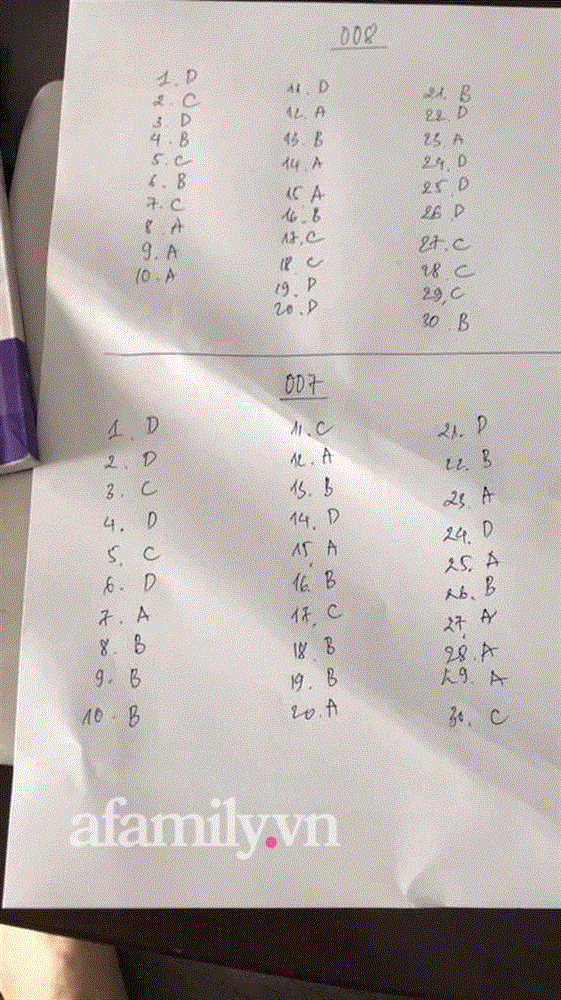 008
1. D
2. C
3. D
4. B
5. C
6. B
7. C
8. A
9. A
10. A
11. D
12. A
13. B
14. A
15 A
16. B
17. C
18. C
19. D
20. D
21. B
22. D
23 A
24. D
25 D
26 D
27. C
28 C
29, C
30. B
007
1. D
2. D
3. C
4. D
5. C
6. D
7. A
8. B
9. B
10. B
11. C
12. A
13. B
14. D
15. A
16. B
17. C
18. B
19. B
20. A
21. D
22. B
23. A
24. D
25. A
26. B
27. A
28. A
29. A
30. C
afamily.vn